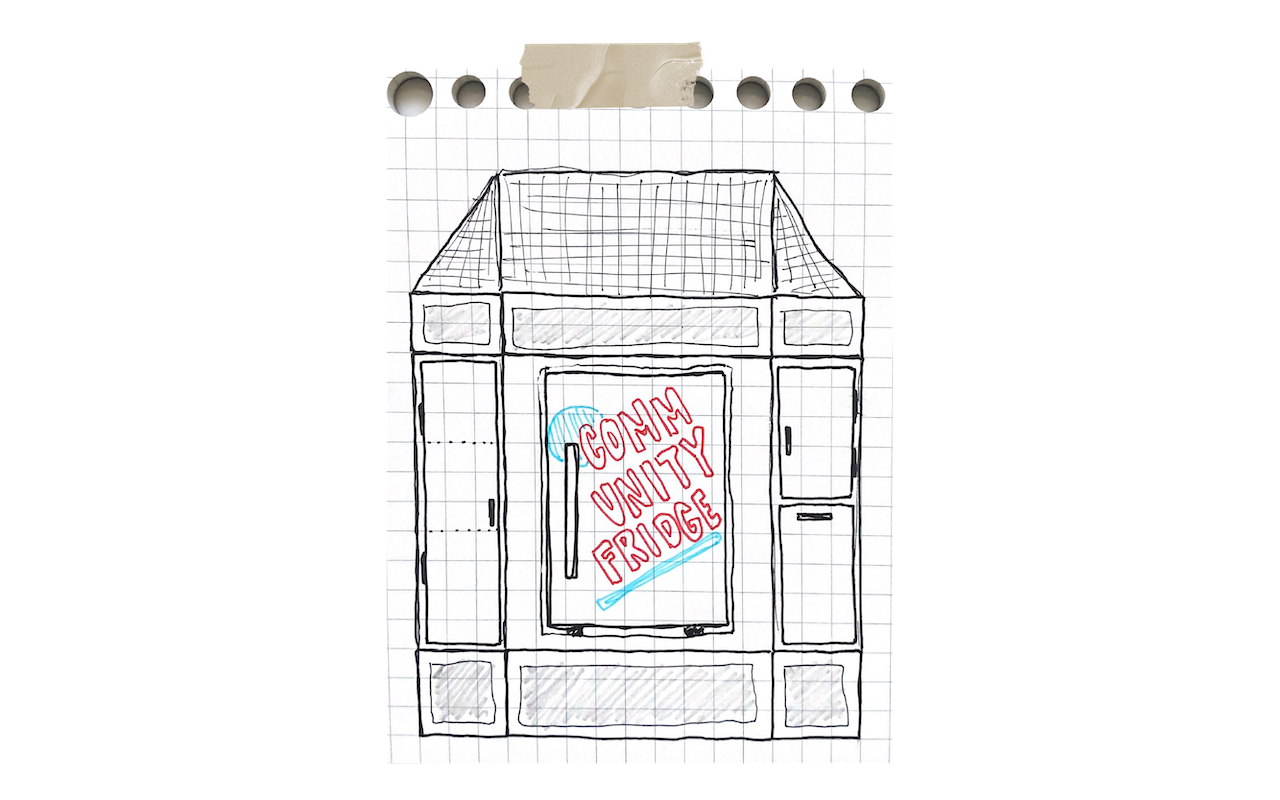 COMM
UNITY
FRIDGE